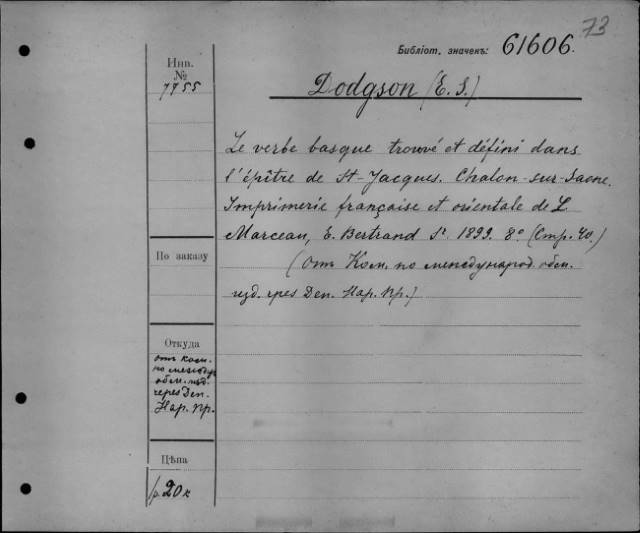 73
Библіот. значенъ: 61606.
Инв.
№
7755
Dodgson (E. S.)
Le verbe basque trouvé et défini dans
l'épître de St-Jacques. Chalon-sur-Saone.
Imprimerie française et orientale de L.
Marceau, E. Bertrand Sr 1899. 8° (Стр. 40.)
(Отъ Ком. по международ. обм.
изд. чрез Деп. Нар. Пр.)
По заказу
Откуда
отъ Ком.
по междунар.
обм. изд.
через Деп.
Нар. Пр.
Цѣна
20 к